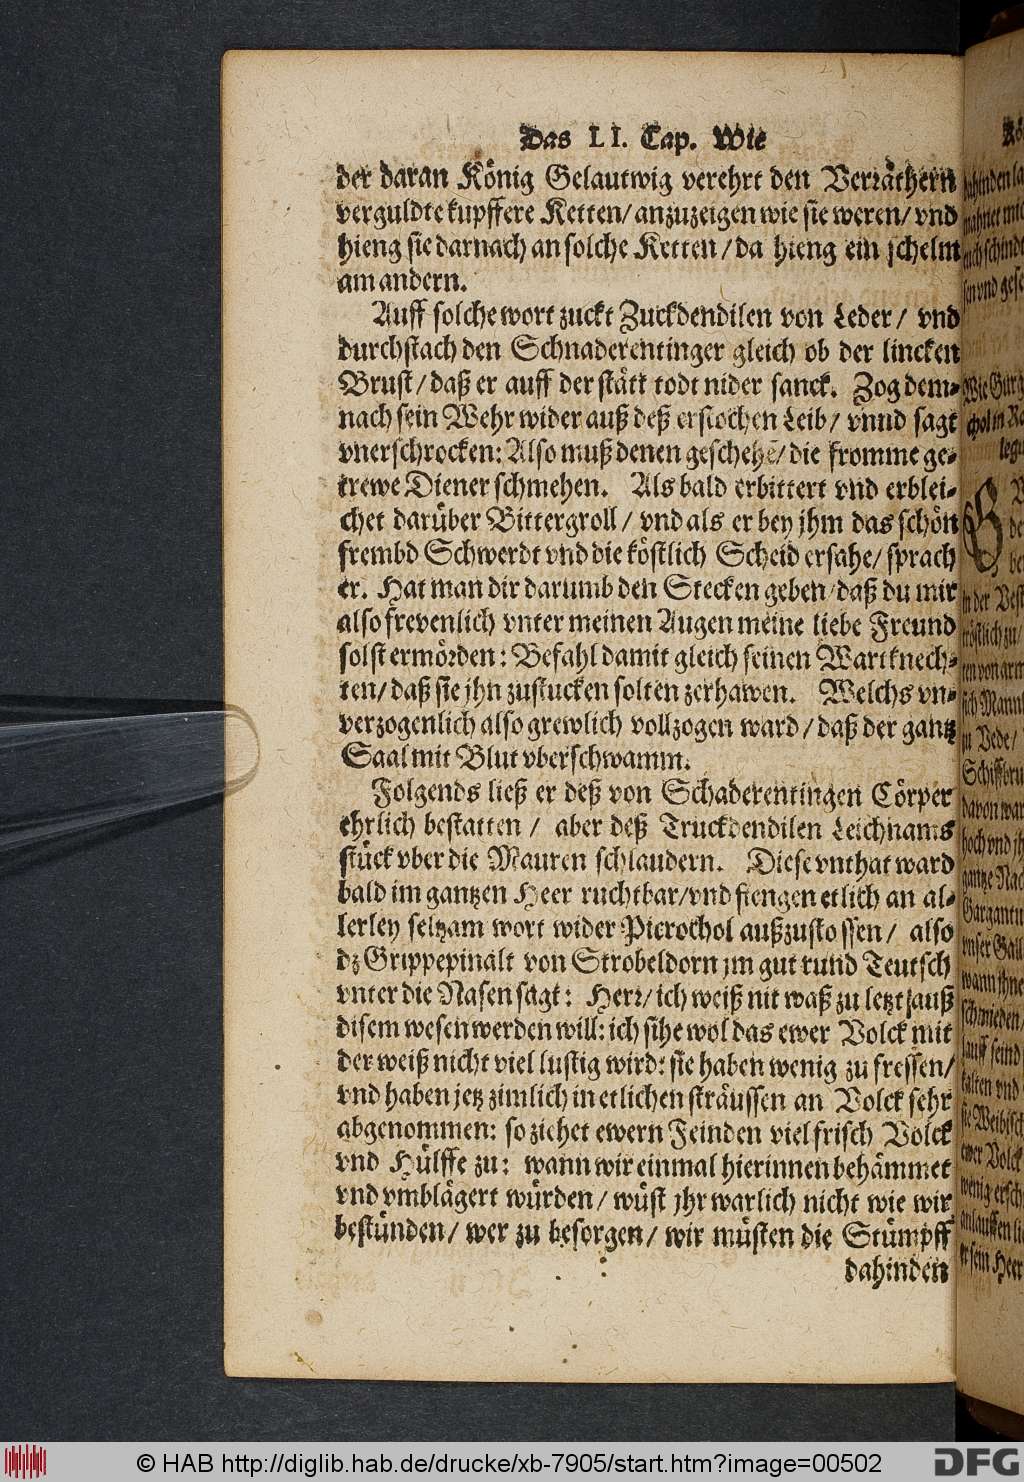 Das LI. Cap. Wie
der daran König Gelautwig verehrt den Verräthern
verguldte kupffere Ketten/ anzuzeigen wie sie weren/ vnd
hieng sie darnach an solche Ketten/ da hieng ein schelm
am andern.
Auff solche wort zuckt Zuckdendilen von Leder/ vnd
durchstach den Schnaderentinger gleich ob der lincken
Brust/ daß er auff der stätt todt nider sanck. Zog dem-
nach sein Wehr wider auß deß erstochen Leib/ vnnd sagt
vnerschrocken: Also muß denen geschehē/ die fromme ge-
trewe Diener schmehen. Als bald erbittert vnd erblei-
chet darüber Bittergroll/ vnd als er bey jhm das schön
frembd Schwerdt vnd die köstlich Scheid ersahe/ sprach
er. Hat man dir darumb den Stecken geben/ daß du mir
also frevenlich vnter meinen Augen meine liebe Freund
solst ermörden: Befahl damit gleich seinen Wartknech-
ten/ daß sie jhn zustucken solten zerhawen. Welchs vn-
verzogenlich also grewlich vollzogen ward/ daß der gantz
Saal mit Blut vberschwamm.
Folgends ließ er deß von Schaderentingen Cörper
ehrlich bestatten/ aber deß Truckdendilen Leichnams
stück vber die Mauren schlaudern. Diese vnthat ward
bald im gantzen Heer ruchtbar/ vnd fiengen etlich an al-
lerley seltzam wort wider Picrochol außzustossen/ also
dz Grippepinalt von Strobeldorn jm gut rund Teutsch
vnter die Nasen sagt: Herr/ ich weiß nit waß zu letzt jauß
disem wesen werden will: ich sihe wol das ewer Volck mit
der weiß nicht viel lustig wird: sie haben wenig zu fressen/
vnd haben jetz zimlich in etlichen sträussen an Volck sehr
abgenommen: so ziehet ewern Feinden viel frisch Volck
vnd Hülffe zu: wann wir einmal hierinnen behämmet
vnd vmblägert würden/ wüst jhr warlich nicht wie wir
bestünden/ wer zu besorgen/ wir müsten die Stümpff
dahinden
© HAB http://diglib.hab.de/drucke/xb-7905/start.htm?image=00502
DFG